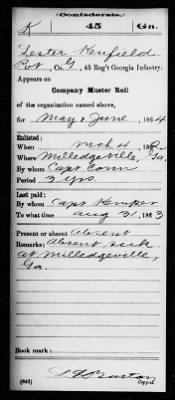 Confederate.
K 45 Ga.
Lester Kenfield
Pvt, Co. G, 45 Reg't Georgia Infantry.
Appears on
Company Muster Roll
of the organization named above,
for May & June, 1864
Enlisted:
When Mch 4, 1862
Where Milledgeville, Ga.
By whom Capt Conn
Period 3 yrs
Last paid:
By whom Capt Kemper
To what time Aug 31, 1863
Present or absent Absent
Remarks: Absent sick
at Milledgeville,
Ga.
Book mark:
(642) Copyist.